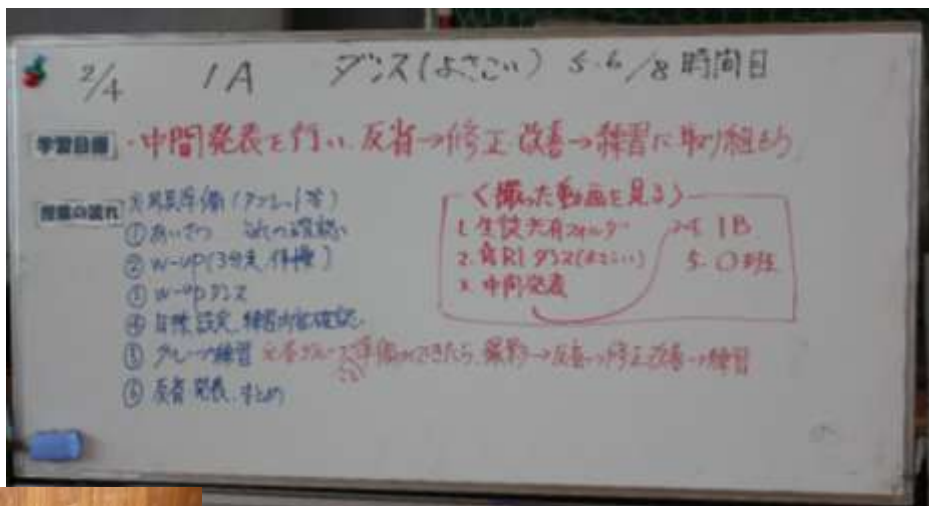 2/4 1A ダンス(よさこい) 5.6/8時間目
学習目標 ・中間発表を行い、反省→修正.改善→練習に取り組もう
授業の流れ ※用具準備(タブレット等)
①あいさつ 流れの確認
②W-up(3分走、体操)
③W-upダンス
④目標設定、練習内容確認
⑤グループ練習 ※各グループごと準備ができたら、撮影→反省→修正改善→練習
⑥反省、発表、まとめ
<撮った動画を見る>
1.生徒共有フォルダー
2. ダンス(よさこい)
3.中間発表
4 1B
5.○班